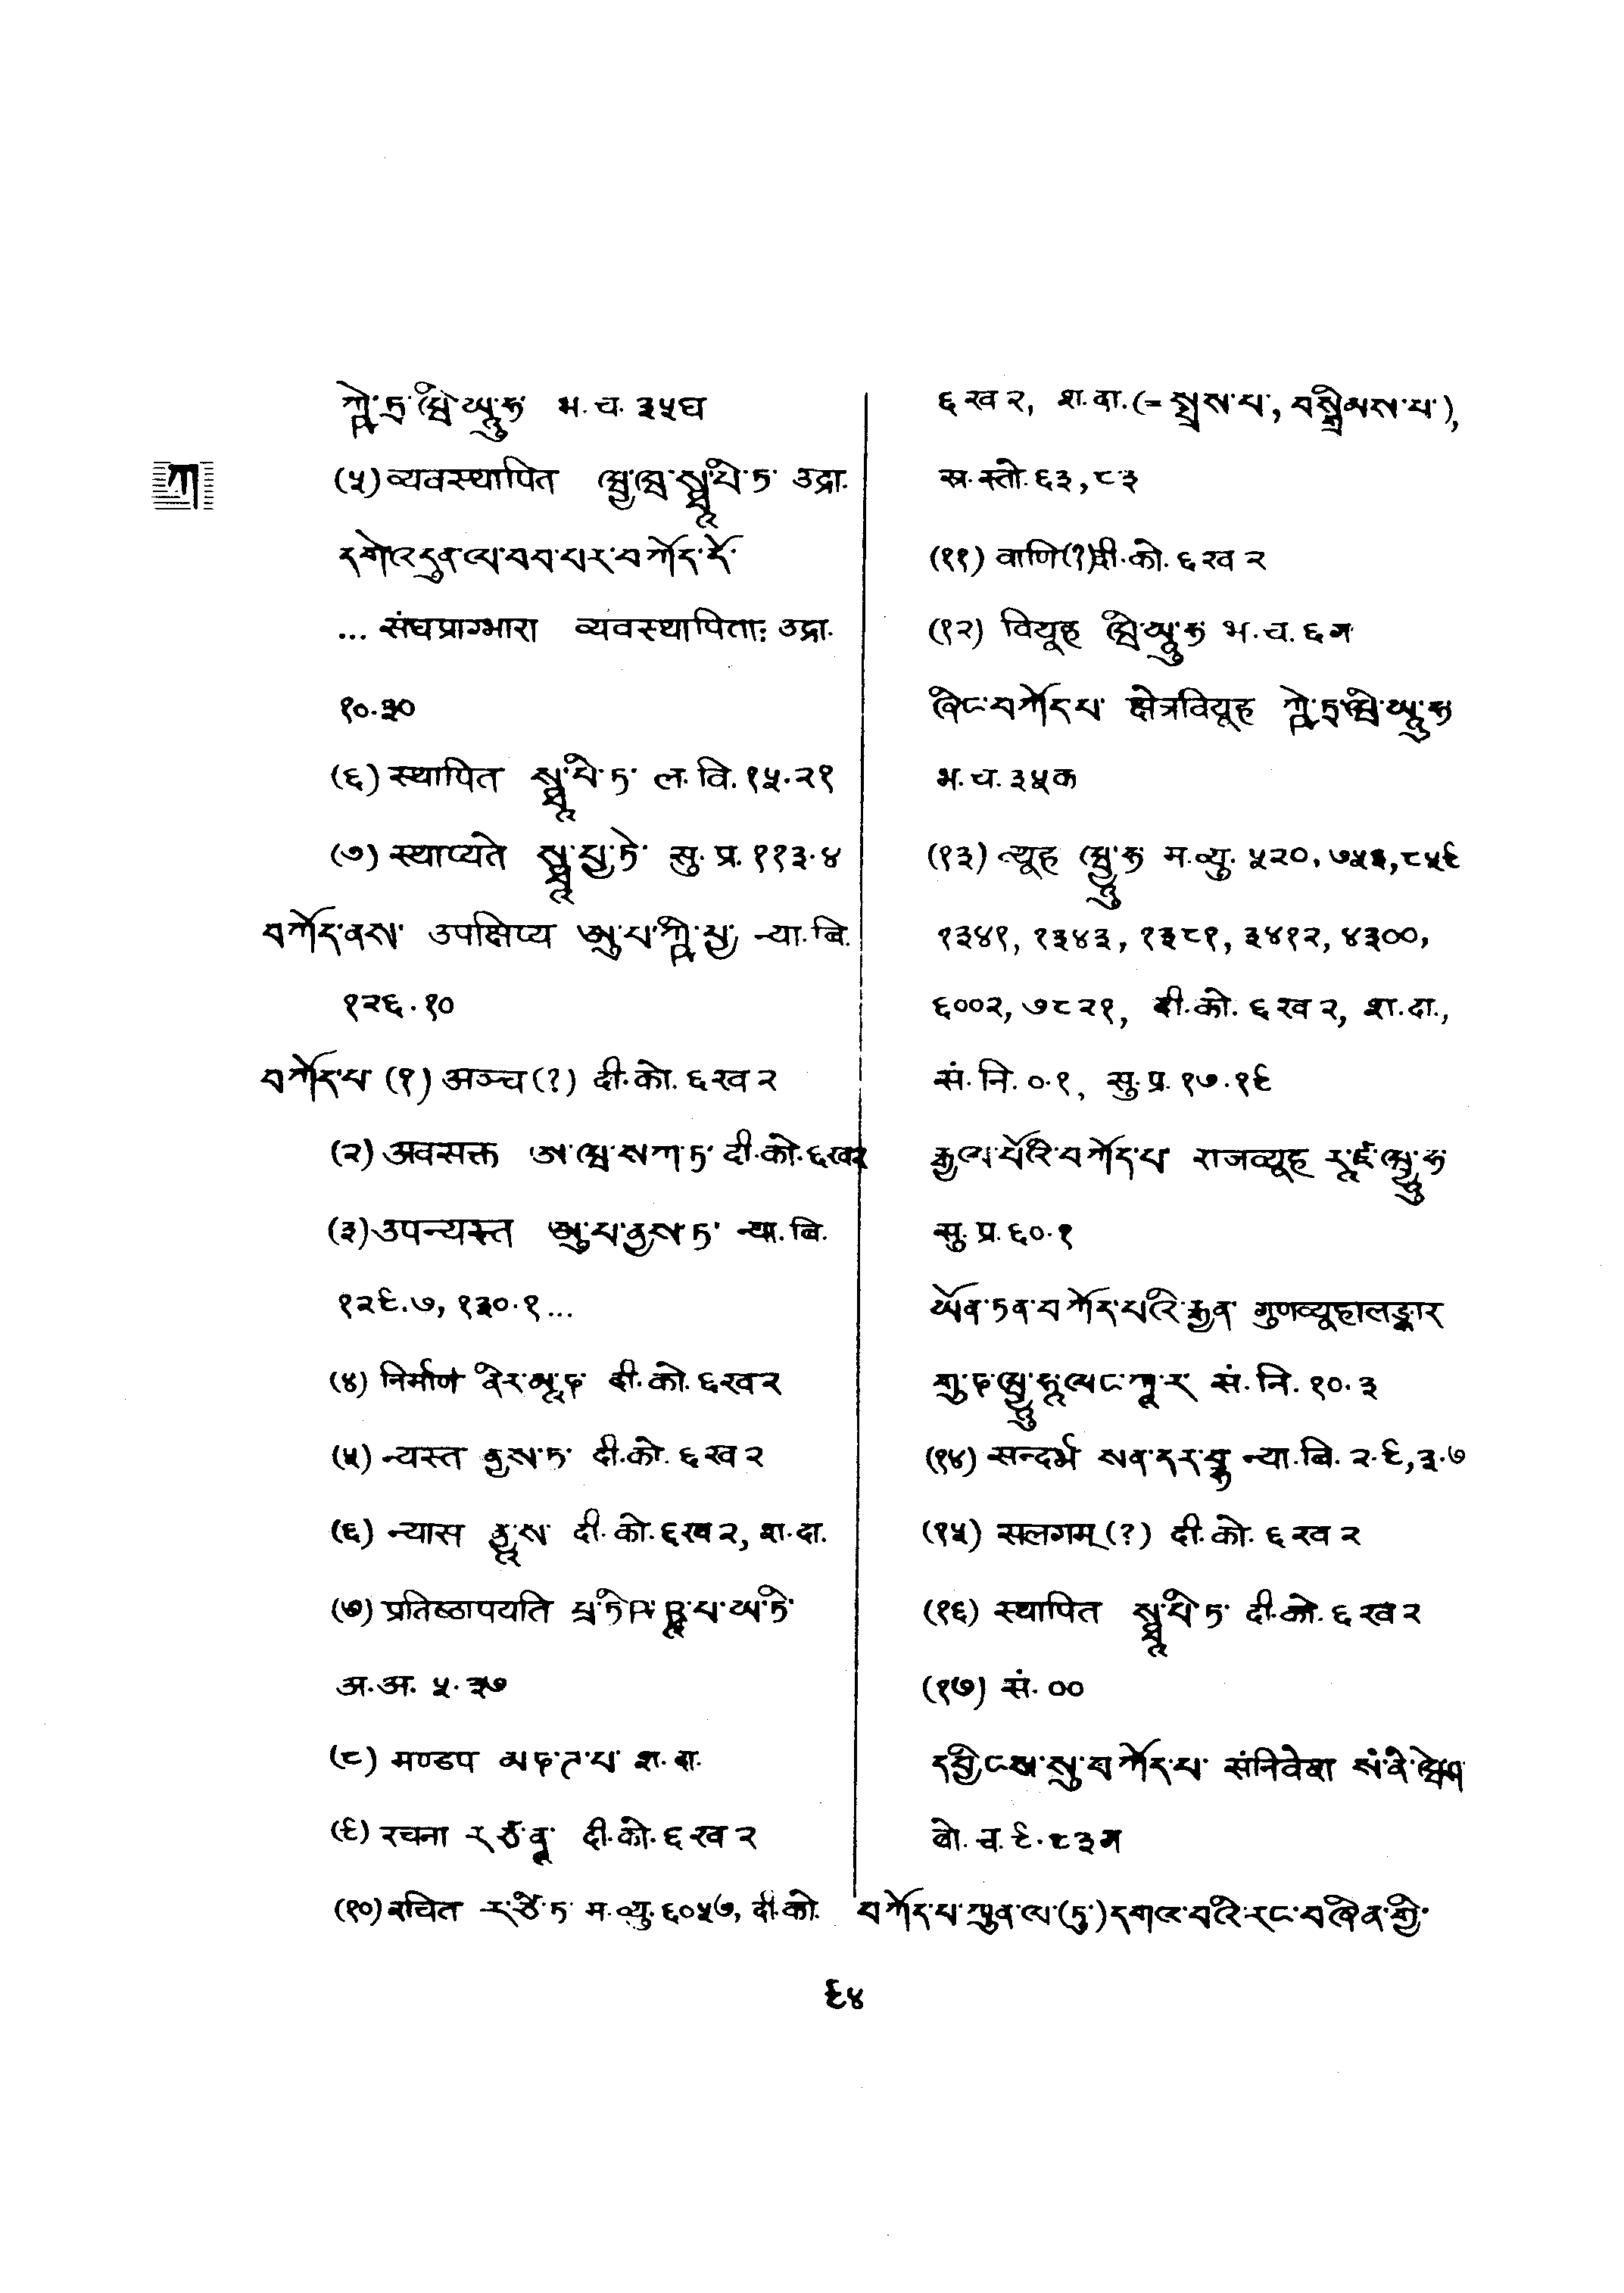 ཀྵེ་ཏྲ་བྷི་ཡཱུ་ཧ भ.च. ३५घ
ཀ
(५) व्यवस्थापित བྱ་བ་སྠཱ་པི་ཏ་ उद्रा.
དགེ་འདུན་ལ་བབ་པར་བཀོད་དེ་
... संघप्राग्भारा व्यवस्थापिताः उद्रा.
१०.३०
(६) स्थापित སྠཱ་པི་ཏ་ ल.वि. १५.२१
(७) स्थाप्यते སྠཱ་པྱ་ཏེ་ सु.प्र. ११३.४
བཀོད་ནས་ उपक्षिप्य ཨུ་པ་ཀྵི་པྱ་ न्या.बि.
१२६.१०
བཀོད་པ་ (१) अञ्च (?) दी.को. ६ख२
(२) अवसक्त ཨ་བ་སཀ་ཏ་ दी.को. ६ख२
(३) उपन्यस्त ཨུ་པ་ནྱས་ཏ་ न्या.बि.
१२९.७, १३०.१...
(४) निर्माण ནིར་མཱ་ཎ दी.को. ६ख२
(५) न्यस्त ནྱས་ཏ་ दी.को. ६ख२
(६) न्यास ནྱཱ་ས་ दी.को. ६ख२, श.दा.
(७) प्रतिष्ठापयति པྲ་ཏི་ཥ་ཋཱ་པ་ཡ་ཏི་
अ.अ. ५.३७
(८) मण्डप མ་ཎ་ཌ་པ་ श.दा.
(९) रचना ར་ཙ་ནཱ་ दी.को. ६ख२
(१०) रचित ར་ཙི་ཏ་ म.व्यु. ६०५७, दी.को.
६ख२, श.दा. (= སྤྲས་པ་, བསྒྲིམས་པ་),
स्र.स्तो. ६३, ८३
(११) वाणि (?) दी.को. ६ख२
(१२) वियूह བི་ཡཱུ་ཧ भ.च. ६ग
ཞིང་བཀོད་པ་ क्षेत्रवियूह ཀྵེ་ཏྲ་བི་ཡཱུ་ཧ
भ.च. ३५क
(१३) व्यूह བྱཱུ་ཧ म.व्यु. ५२०, ७५३, ८५९
१३४१, १३४३, १३८१, ३४१२, ४३००,
६००२, ७८२१, दी.को. ६ख२, श.दा.,
सं.नि. ०.१, सु.प्र. १७.१९
རྒྱལ་པོའི་བཀོད་པ་ राजव्यूह རཱ་ཛ་བྱཱུ་ཧ
सु.प्र. ६०.१
ཡོན་ཏན་བཀོད་པའི་རྒྱན་ गुणव्यूहालङ्कार
གུ་ཎ་བྱཱུ་ཧཱ་ལང་ཀཱ་ར་ सं.नि. १०.३
(१४) सन्दर्भ སན་དར་བྷ न्या.बि. २.९, ३.७
(१५) सलगम् (?) दी.को. ६ख२
(१६) स्थापित སྠཱ་པི་ཏ་ दी.को. ६ख२
(१७) सं. ००
དབྱིངས་སུ་བཀོད་པ་ संनिवेश སཾ་ནི་བེ་ཤ
बो.च. ९.८३ग
བཀོད་པ་ཀུན་ལ་(ཏུ་)དགའ་བའི་རང་བཞིན་གྱི་
९४